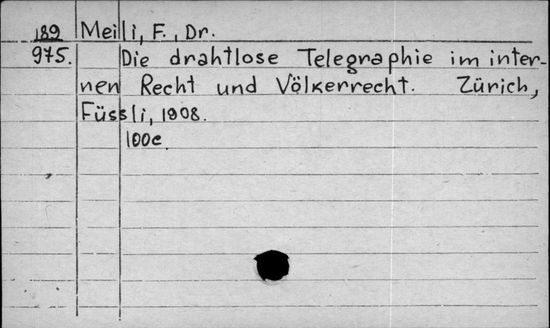 189 Meili, F., Dr.
975. Die drahtlose Telegraphie im inter-
nen Recht und Völkerrecht. Zürich,
Füssli, 1908.
100e.